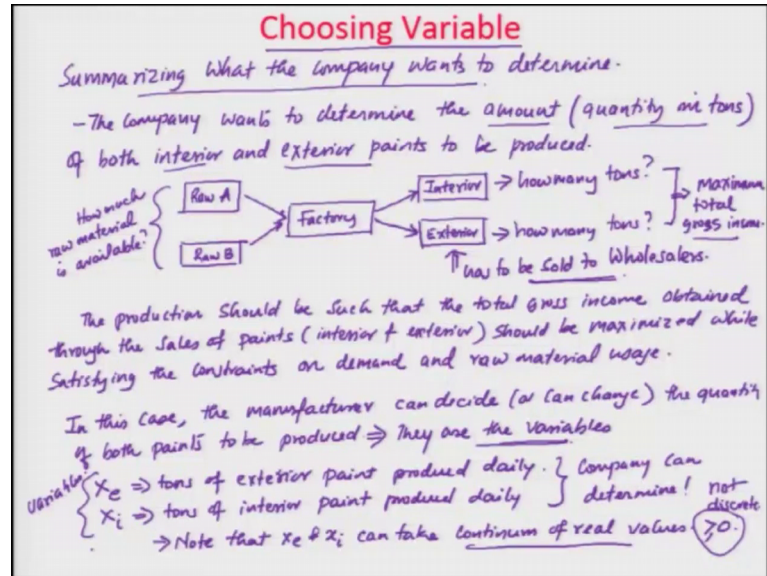 Choosing Variable
Summarizing what the company wants to determine.
- The company wants to determine the amount (quantity in tons)
of both interior and exterior paints to be produced.
How much raw material is available?
Raw A
Raw B
Factory
Interior → how many tons?
Exterior → how many tons?
⇒ maximum total gross income.
↑ has to be sold to wholesalers.
The production should be such that the total gross income obtained
through the sales of paints (interior + exterior) should be maximized while
satisfying the constraints on demand and raw material usage.
In this case, the manufacturer can decide (or can change) the quantity
of both paints to be produced ⇒ They are the variables
Variables
xe ⇒ tons of exterior paint produced daily.
xi ⇒ tons of interior paint produced daily
Company can determine!
not discrete
→ Note that xe & xi can take continuum of real values ≥0.